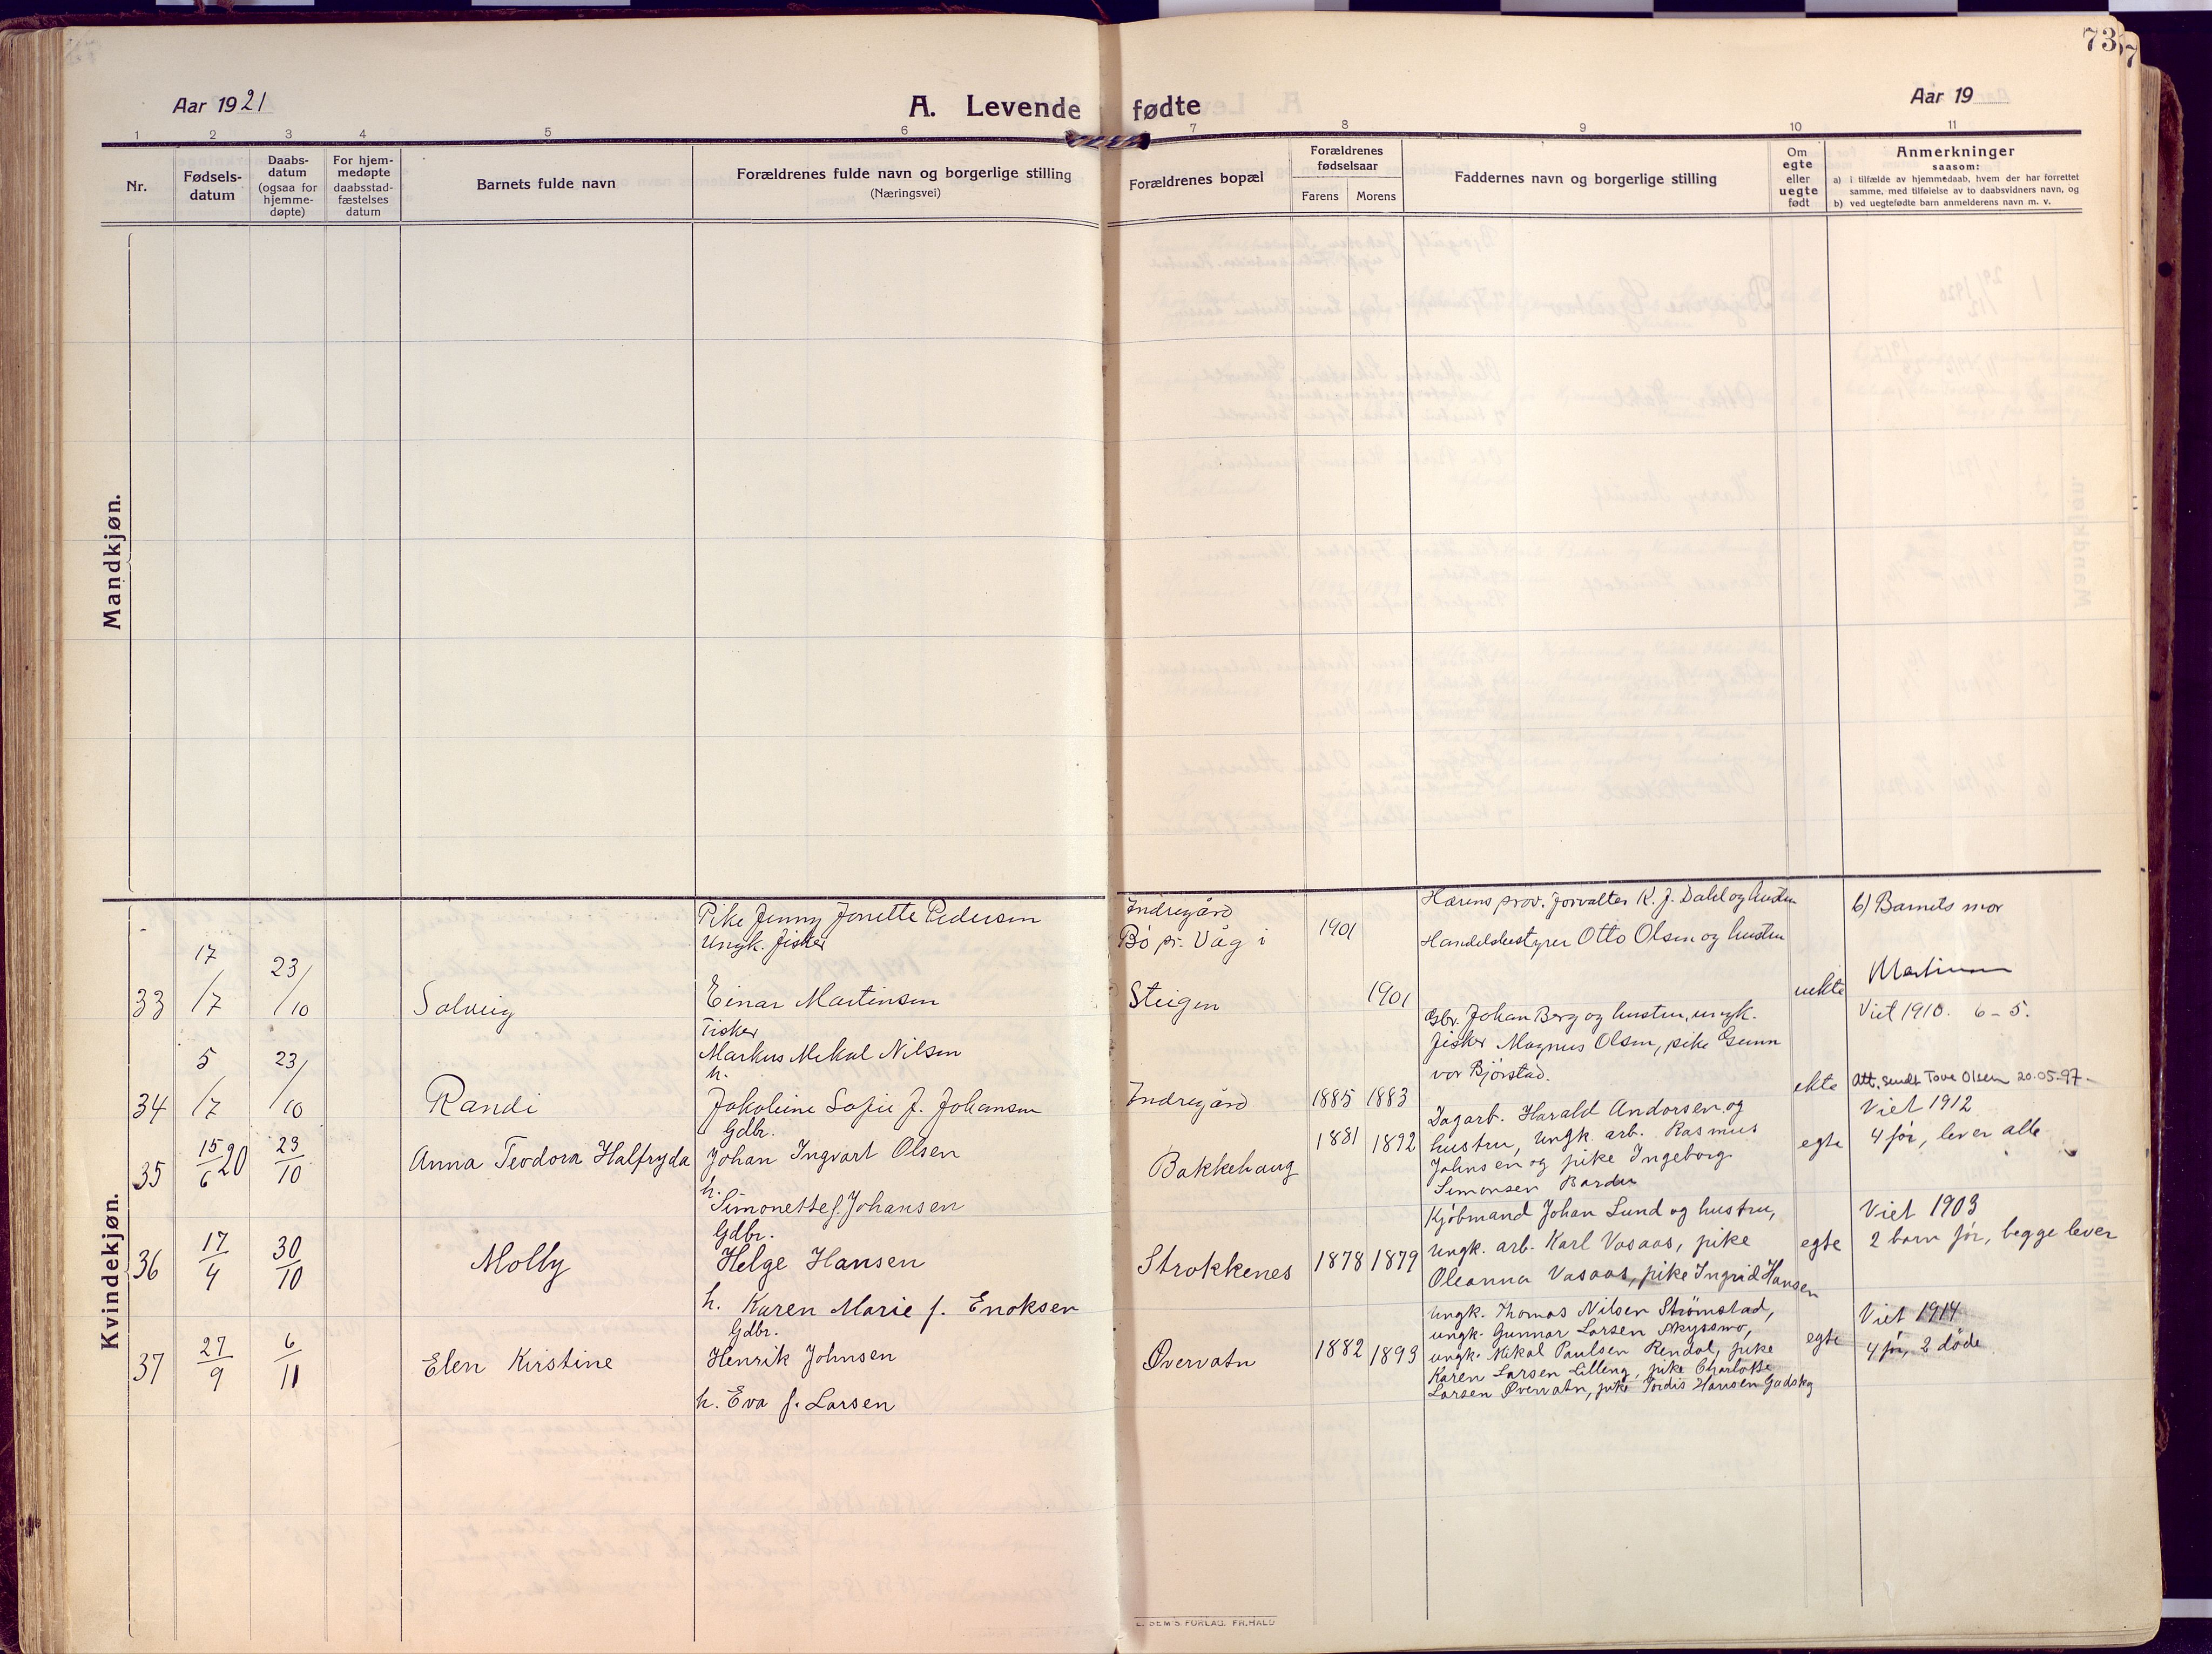 73
Aar 1921
A. Levende fødte
Aar 19
1 2 3 4 5 6 7 8 9 10 11
Nr.
Fødsels-
datum
Daabs-
datum
(ogsaa for
hjemme-
døpte)
For hjem-
medøpte
daabsstad-
fæstelses
datum
Barnets fulde navn
Forældrenes fulde navn og borgerlige stilling
(Næringsvei)
Forældrenes bopæl
Forældrenes
fødselsaar
Farens Morens
Faddernes navn og borgerlige stilling
Om
egte
eller
uegte
født
Anmerkninger
saasom:
a) i tilfælde av hjemmedaab, hvem der har forrettet
samme, med tilføielse av to daabsvidners navn, og
b) ved uegtefødte barn anmelderens navn m. v.
Mandkjøn.
Kvindekjøn.
33
17/7
23/10
Solveig
Pike Jenny Jonette Pedersen
Ungk. fisker
Einar Martinsen
Indregård
Bö pr. Våg i
Steigen
1901
1901
Hærens prov. forvalter K. J. Dahl og hustru
Handelsbestyrer Otto Olsen og hustru
uekte
b) Barnets mor
34
5/7
23/10
Randi
Fisker
Markus Mikal Nilsen
h.
Jakobine Sofie f. Johansen
Indregård
1885 1883
Gbr. Johan Berg og hustru, ungk.
fisker Magnus Olsen, pike Gunn
vor Bjørstad.
ekte
Viet 1910. 6-5.
Att. sendt Tove Olsen 20.05.97-
35
15/6 20
23/10
Anna Teodora Halfryda
Gdbr.
Johan Ingvart Olsen
h.
Simonette f. Johansen
Bakkehaug
1881 1892
Dagarb. Harald Andorsen og
hustru, ungk. arb. Rasmus
Johnsen og pike Ingeborg
Simonsen Bardu
egte
Viet 1912
4 för, lever alle
36
17/4
30/10
Molly
Gdbr.
Helge Hansen
h. Karen Marie f. Enoksen
Strokkenes
1878 1879
Kjöbmand Johan Lund og hustru,
ungk. arb. Karl Vasaas, pike
Oleanna Vasaas, pike Ingrid Hansen
egte
Viet 1903
2 barn för, begge lever
37
27/9
6/11
Elen Kirstine
Gdbr.
Henrik Johnsen
h. Eva f. Larsen
Øvervatn
1882 1893
ungk. Thomas Nilsen Strømstad,
ungk. Gunnar Larsen
ungk. Mikal Paulsen Rendal, pike
Karen Larsen Lilleng, pike Charlotte
Larsen Øvervatn, pike Jordis Hansen
egte
Viet 1914
4 för, 2 döde
FORLAG. FR.HALD